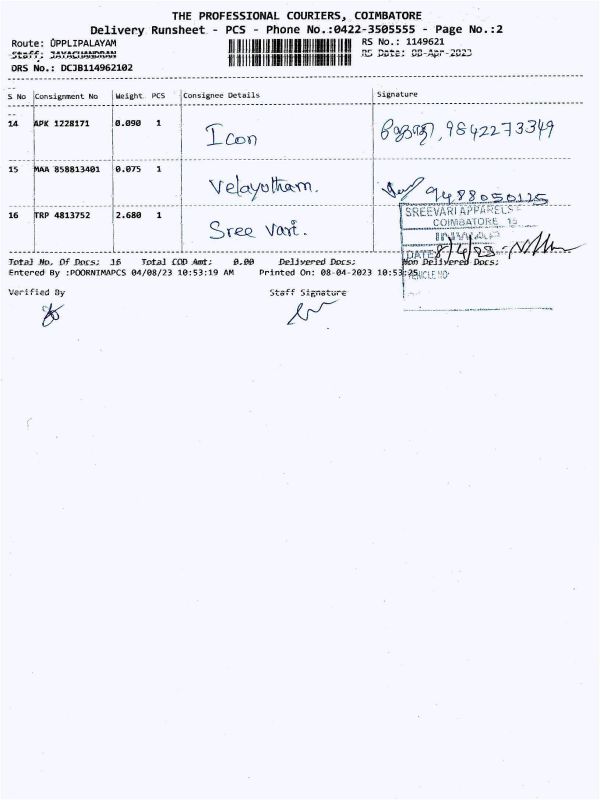 THE PROFESSIONAL COURIERS, COIMBATORE
Delivery Runsheet - PCS - Phone No.:0422-3505555 - Page No.:2
Route: UPPLIPALAYAM RS No.: 1149621
Staff: JAYACHANDRAN RS Date: 08-Apr-2023
DRS No.: DCJB114962102
S No Consignment No Weight PCS Consignee Details Signature
14 APK 1228171 0.090 1 Icon 9842273349
15 MAA 858813401 0.075 1 Velayutham. 9488050125
16 TRP 4813752 2.680 1 Sree Vari.
SREEVARI APPARELS
COIMBATORE 15
INWARD
DATE 8/4/23
VEHICLE NO
Total No. Of Docs: 16 Total COD Amt: 0.00 Delivered Docs: Non Delivered Docs:
Entered By :POORNIMAPCS 04/08/23 10:53:19 AM Printed On: 08-04-2023 10:53:25
Verified By Staff Signature